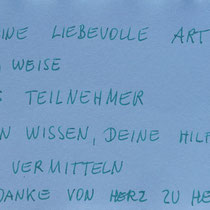 INE LIEBEVOLLE ART
WEISE
TEILNEHMER
N WISSEN, DEINE HILF
VERMITTELN
DANKE VON HERZ ZU HE